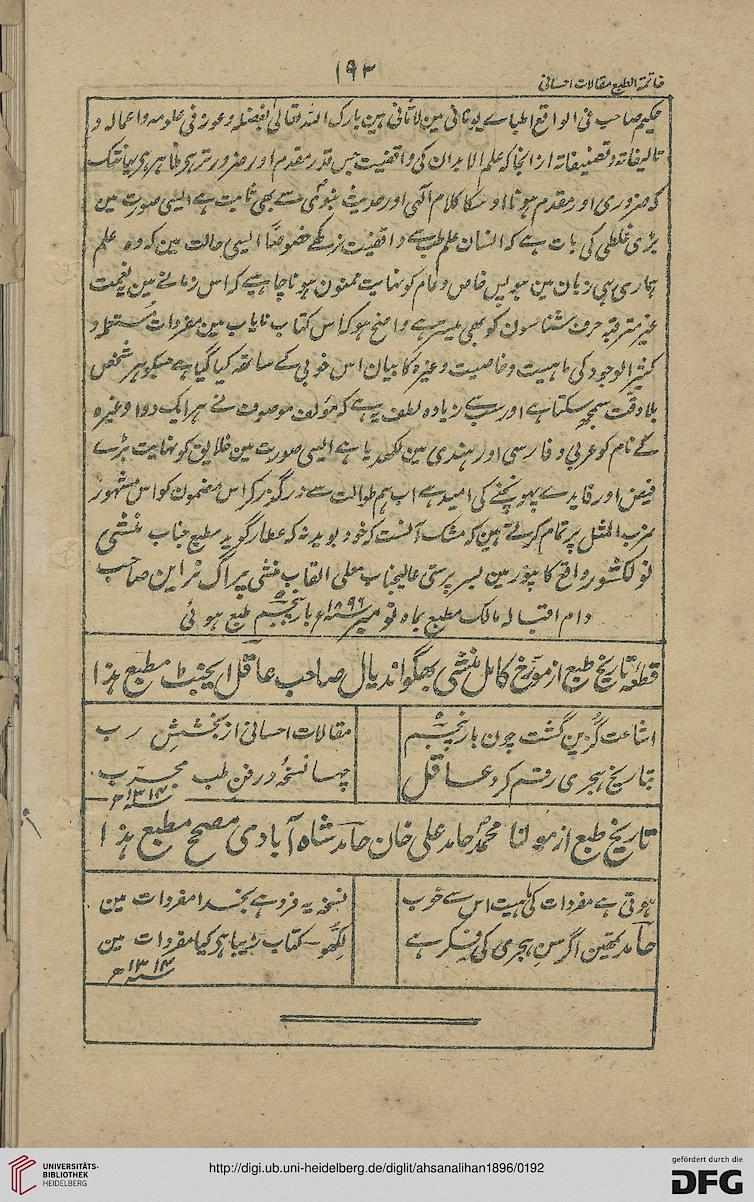 ۱۹۲
خاتمة الطبع مقالات احسانی
حکیم صاحب فی الواقع اطباے یونانی مین لاثانی ہین بارک اللہ تعالیٰ بفضلہ وعونہ فی علومہ واعمالہ و
تالیفاتہ وتصنیفاتہ ازانجا کہ علم الابدان کی واقفیت جس قدر مقدم اور ضرور تر ہی ظاہر ہی یہانتک
کہ ضروری اور مقدم ہونا اوسکا کلام الٰہی اور حدیث نبوی سے بھی ثابت ہے ایسی صورت مین
بڑی غلطی کی بات ہے کہ انسان علم طب سے واقفیت نرکھے خصوصًا ایسی حالت مین کہ وہ علم
ہماری ہی زبان مین ہو پس خاص وعام کو نہایت ممنون ہونا چاہیے کہ اس زمانے مین یہ نعمت
غیر مترقبہ حرف شناسون کو بھی میسر ہے واضح ہو کہ اس کتاب نایاب مین مفردات مستعملہ و
کثیر الوجود کی ماہیت وخاصیت وغیرہ کا بیان اس خوبی کے ساتھ کیا گیا ہے جسکو ہر شخص
بلا دقت سمجھ سکتا ہے اور سب سے زیادہ لطف یہ ہے کہ مؤلف موصوف نے ہر ایک دوا وغیرہ
کے نام کو عربی وفارسی اور ہندی مین لکھدیا ہے ایسی صورت مین خلایق کو نہایت بڑے
فیض اور فایدے پہونچنے کی امید ہے اب ہم طوالت سے درگذر کر اس مضمون کو اس مشہور
ضرب المثل پر تمام کرتے ہین کہ مشک آنست کہ خود ببوید نہ کہ عطار گوید مطبع جناب منشی
نولکشور واقع کانپور مین بسرپرستی عالیجناب معلی القاب منشی پراگ نراین صاحب
دام اقبالہ مالک مطبع بماہ نومبر ۱۸۹۶ء بار پنجم طبع ہوئی
قطعہ تاریخ طبع از مورخ کامل منشی بھگواندیال صاحب عاقل ایجنٹ مطبع ہذا
اشاعت گزین گشت چون بار پنجم
مقالات احسانی از بخشش رب
بتاریخ ہجری رقم کرد عاقل
چہا نسخہ در فن طب مجرب
۱۳۱۴ھ
تاریخ طبع از مولنا محمد حامد علی خان حامد شاہ آبادی مصحح مطبع ہذا
ہوتی ہے مفردات کی ماہیت اس سے خوب
نسخہ یہ فرد ہے بخدا مفردات مین
حامد تمھین اگر سن ہجری کی فکر ہے
لکھو کتاب زیبا ہر کیا مفردات مین
۱۳۱۴ھ
UNIVERSITÄTS-
BIBLIOTHEK
HEIDELBERG
http://digi.ub.uni-heidelberg.de/diglit/ahsanalihan1896/0192
gefördert durch die
DFG